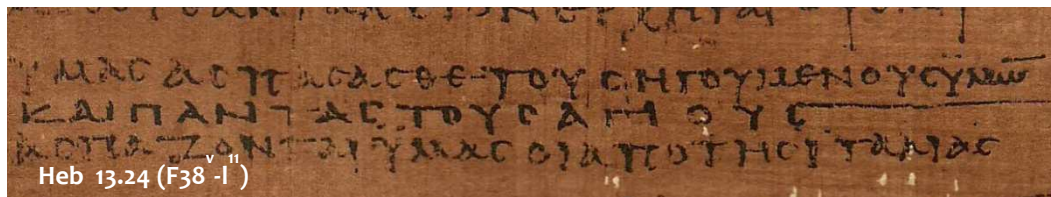 ΥΜΑϹ ΑϹΠΑϹΑϹΘΕ ΤΟΥϹ ΗΓΟΥΜΕΝΟΥϹ ΫΜΩ̅
ΚΑΙ ΠΑΝΤΑϹ ΤΟΥϹ ΑΓΙΟΥϹ
ΑϹΠΑΖΟΝΤΑΙ ΥΜΑϹ ΟΙ ΑΠΟ ΤΗϹ ΪΤΑΛΙΑϹ
Heb 13.24 (F38v-l11)